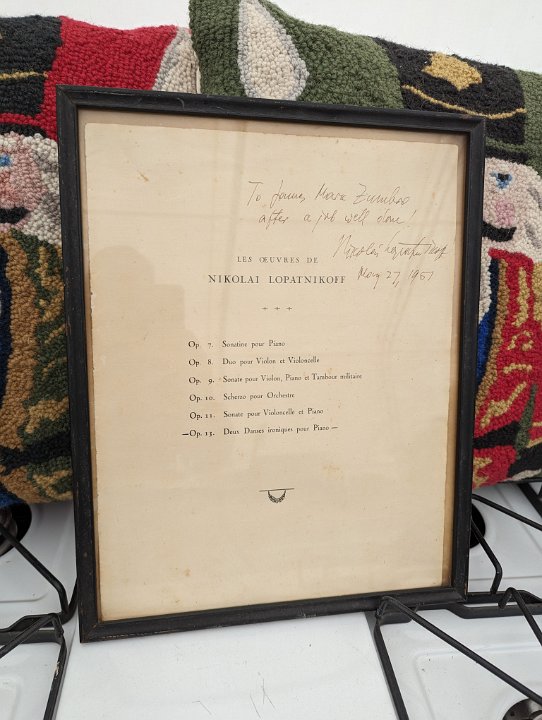 To James Mark Zumbro
after a job well done!
Nikolai Lopatnikoff
May 27, 1951
LES ŒUVRES DE
NIKOLAI LOPATNIKOFF
+ + +
Op. 7. Sonatine pour Piano
Op. 8. Duo pour Violon et Violoncelle
Op. 9. Sonate pour Violon, Piano et Tambour militaire
Op. 10. Scherzo pour Orchestre
Op. 11. Sonate pour Violoncelle et Piano
—Op. 13. Deux Danses ironiques pour Piano —